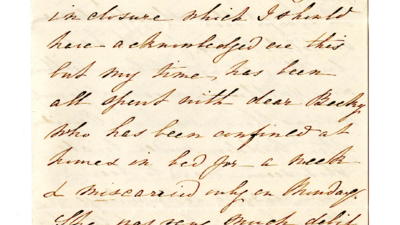 inclosure which I should
have acknowledged ere this
but my time, has been
all spent with dear Becky
who has been confined at
homes in bed for a week
& miscarried only on Monday.
She was very much debil